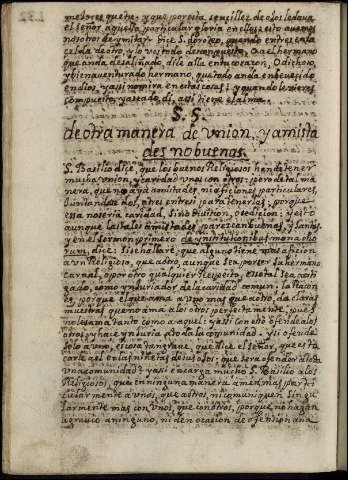 mejores que tu: y que por esta senzillez de ojos le dava
el señor aquesta particular gloria en ellos: esto avemos
nosotros de ymitar. Dize S. doroteo, quando entres en la
celda de otro y lo ves todo descompuesto, O a el hermano
que anda desaliñado, dile alla en tu corazon, O dichoso,
y bienaventurado hermano, que todo anda embevecido
en dios, y assi no mira en estas cosas: y quando le vieres
compuesto, y aseado, di, assi tiene el alma.
S. 5.
de otra manera de Union, y amista
des no buenas.
S. Basilio dice, que los buenos Religiosos han de tener
mucha union, y caridad unos con otros: pero de tal ma
nera, que no haya amistades, ni aficiones particulares,
juntandose dos, o tres entre si para tenerlas, porque
essa no seria caridad, sino division, o sedicion; y esto
aunque las tales amistades parezcan buenas, y santas,
y en el sermon primero de ynstitutionibus
dice: si se hallare, que alguno tiene mas aficion
a un Religioso, que a otro, aunque sea por ser su hermano
carnal, o por otro qualquier Respecto, este tal sea casti
gado, como ynjuriador de la caridad comun; la razon
es, porque el que ama a uno mas que a otro, da claras
muestras que no ama a los otros perfectamente, pues
no les ama tanto como a aquel: y assi con esto ofende a los
otros, y haze ynjuria a toda la comunidad. y si ofender
solo a uno, es cosa tan grave, que dice el Señor, que es to
carle a el en las niñetas de sus ojos: que sera ofender a toda
una comunidad? y assi encarga mucho S. Basilio a los
Religiosos, que en ninguna manera amen mas parti
cularmente a unos, que a otros, ni comuniquen singu
larmente mas con unos, que con otros, porque no hagan
agravio a ninguno, ni den ocasion de ofension a na